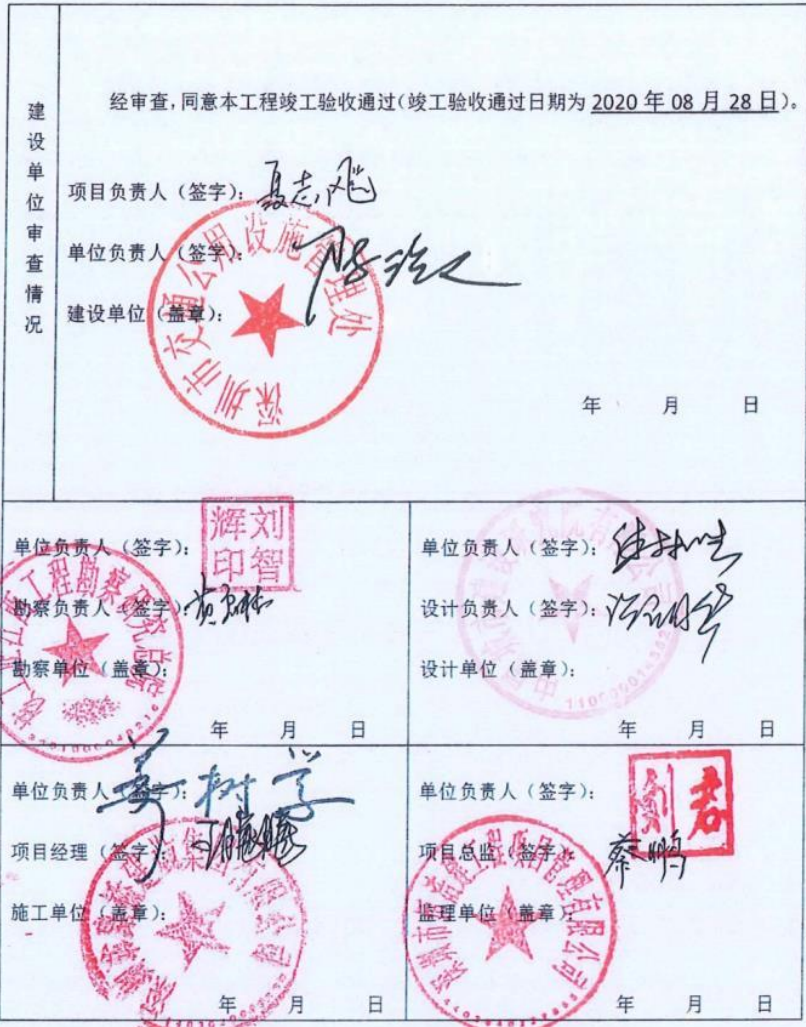 建设单位审查情况
经审查,同意本工程竣工验收通过(竣工验收通过日期为 2020 年 08 月 28 日)。
项目负责人(签字):
单位负责人(签字):
建设单位(盖章):
深圳市交通公用设施管理处
年 月 日
单位负责人(签字):
刘智辉印
勘察负责人(签字):
勘察单位(盖章):
年 月 日
单位负责人(签字):
设计负责人(签字):
设计单位(盖章):
年 月 日
单位负责人(签字): 姜树学
项目经理(签字):
施工单位(盖章):
年 月 日
单位负责人(签字):
项目总监(签字): 蔡鹏
监理单位(盖章):
年 月 日